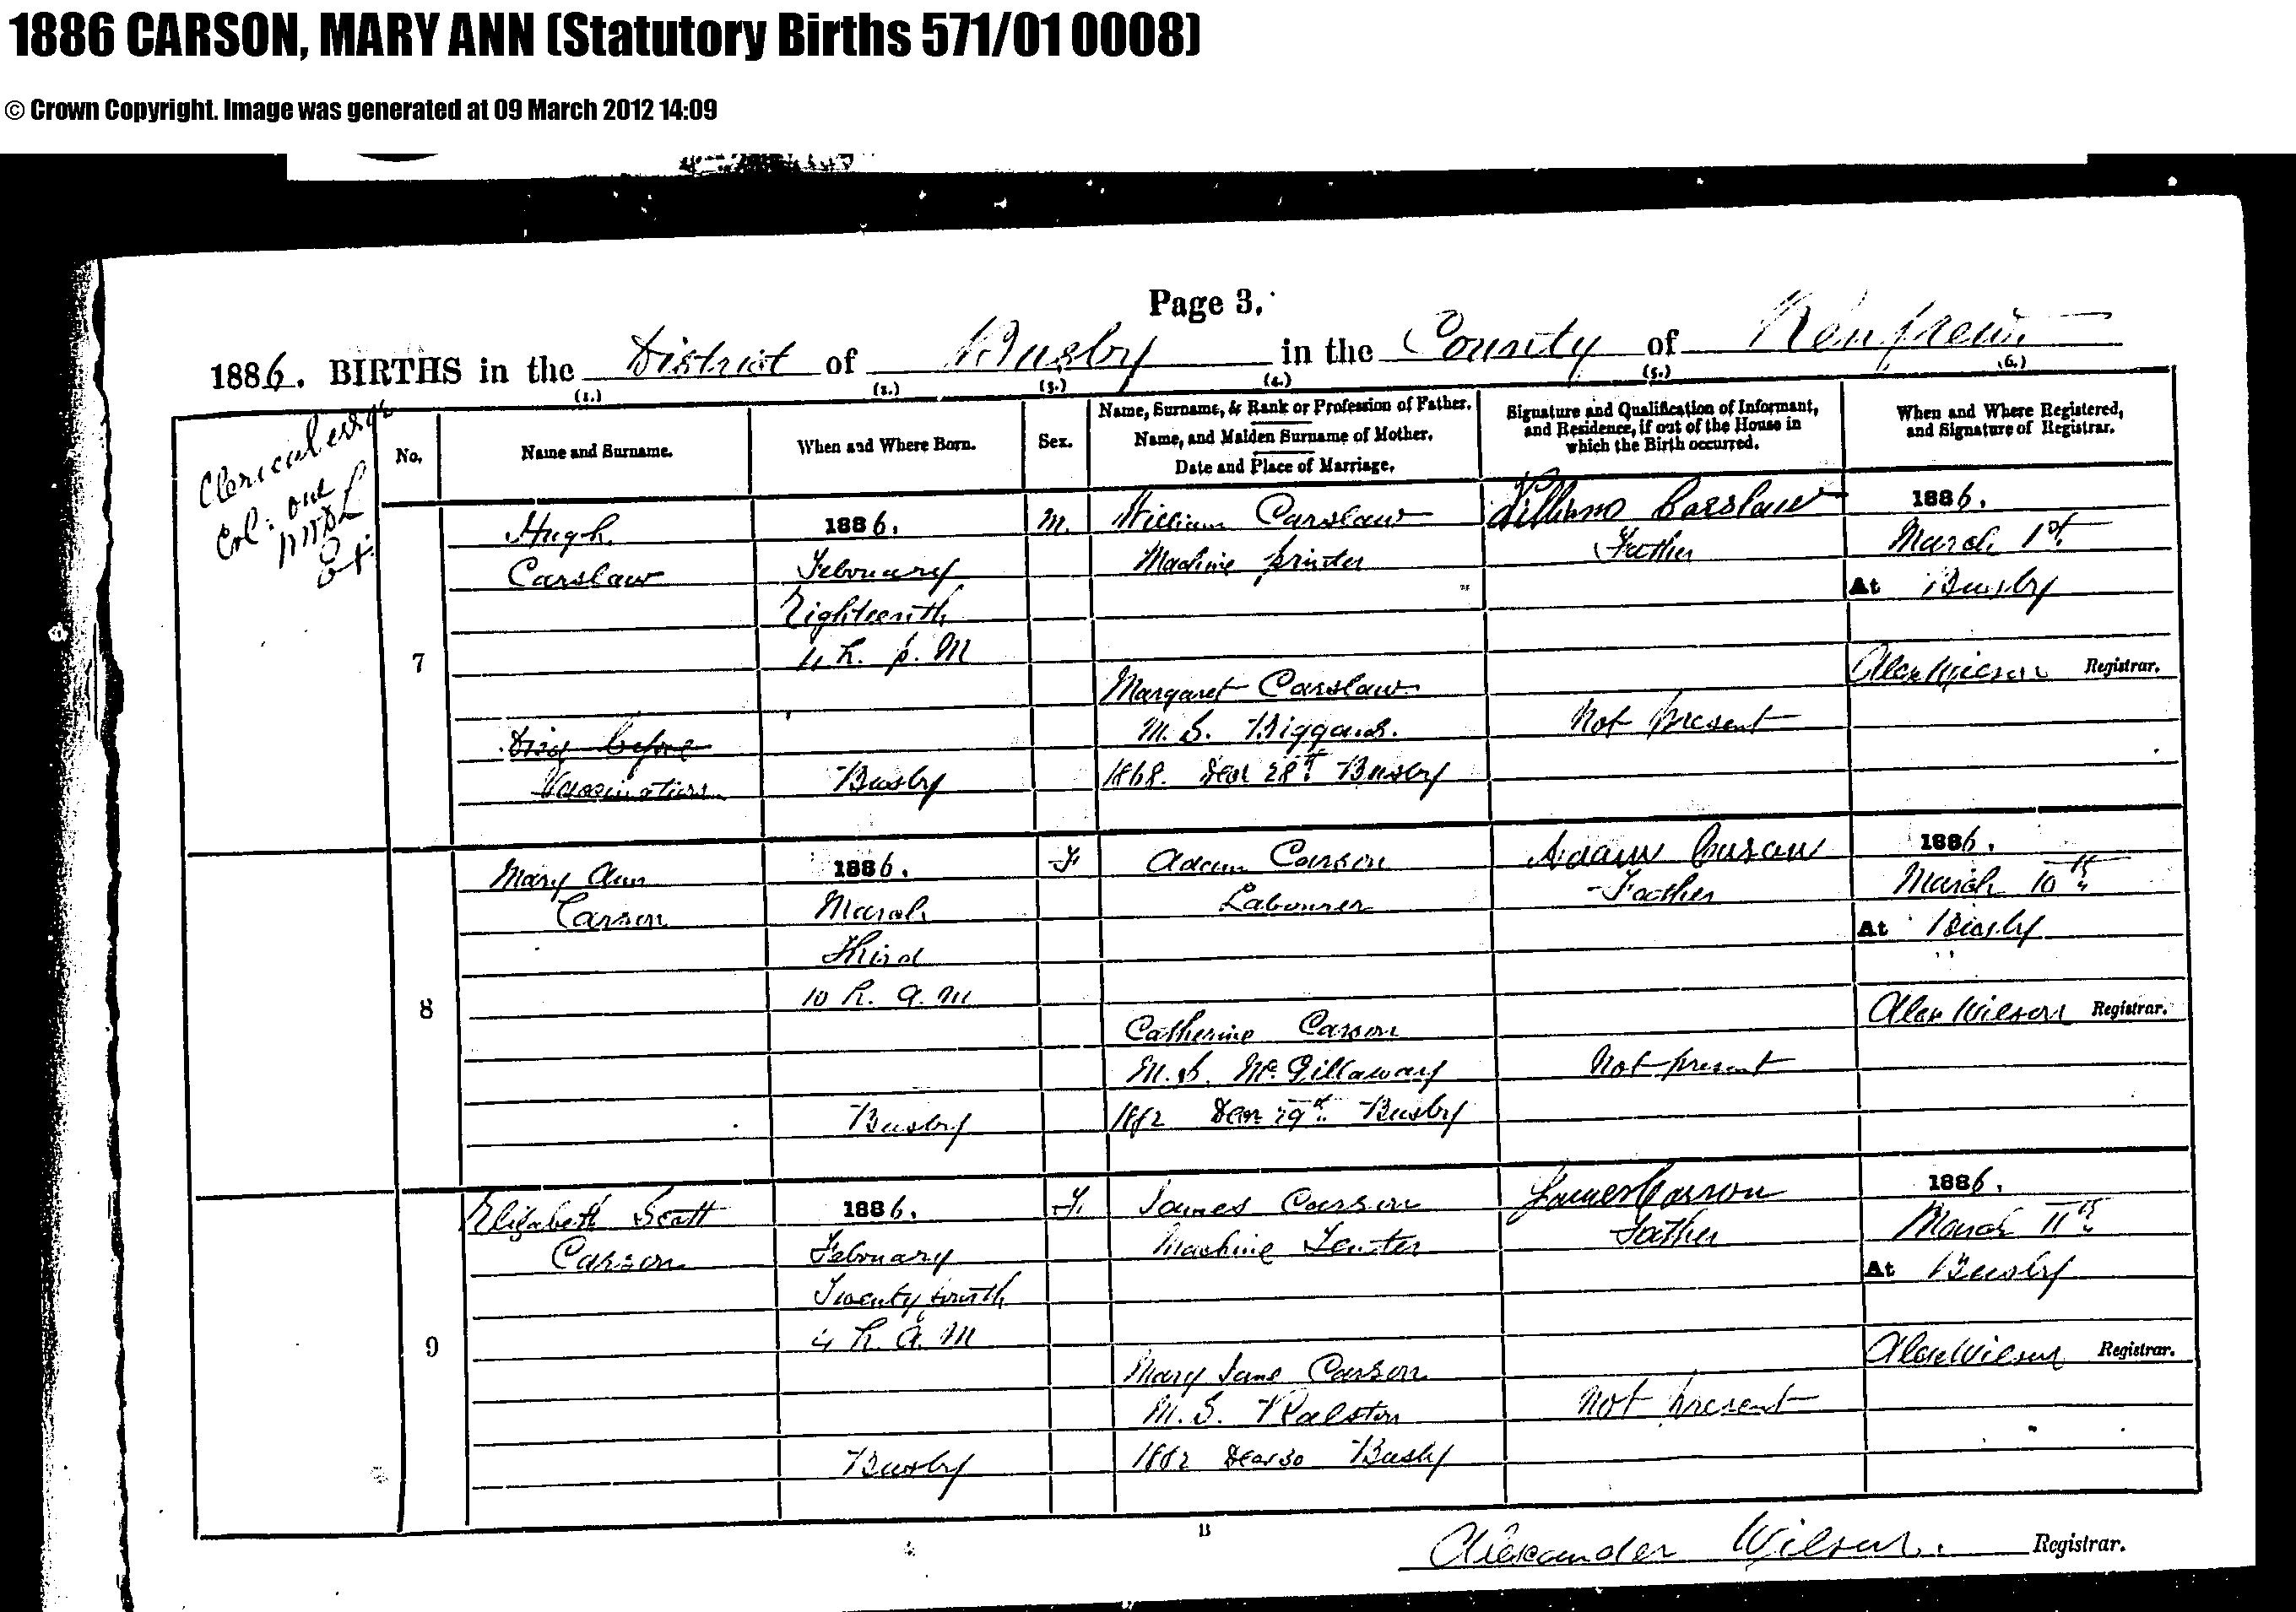 1886 CARSON, MARY ANN (Statutory Births 571/01 0008)
© Crown Copyright. Image was generated at 09 March 2012 14:09
Page 3.
1886. BIRTHS in the District of Busby in the County of Renfrew
(1.) (2.) (3.) (4.) (5.) (6.)
No.
Name and Surname.
When and Where Born.
Sex.
Name, Surname, & Rank or Profession of Father.
Name, and Maiden Surname of Mother.
Date and Place of Marriage.
Signature and Qualification of Informant,
and Residence, if out of the House in
which the Birth occurred.
When and Where Registered,
and Signature of Registrar.
Clerical error
Col: one
7
Hugh
Carslaw
Died before
Vaccination
1886.
Febouary
Eighteenth
4 h. p. M
Busby
M.
William Carslaw
Machine printer
Margaret Carslaw
M. S. Biggans.
1868. Decr 28th Busby
William Carslaw
Father
Not present
1886.
March 1st
At Busby
Alex Wilson Registrar.
8
Mary Ann
Carson
1886.
March
Third
10 h. a. m
Busby
F
Adam Carson
Labourer
Catherine Carson
M. S. McGillaway
1882 Decr 29th Busby
Adam Carson
Father
Not present
1886.
March 10th
At Busby
Alex Wilson Registrar.
9
Elizabeth Scott
Carson
1886.
Febouary
Twenty fourth
4 h. a. M
Busby
F.
James Carson
Machine Tenter
Mary Jane Carson
M. S. Ralston
1882 Decr 30 Busby
James Carson
Father
Not present
1886.
March 11th
At Busby
Alex Wilson Registrar.
B
Alexander Wilson. Registrar.